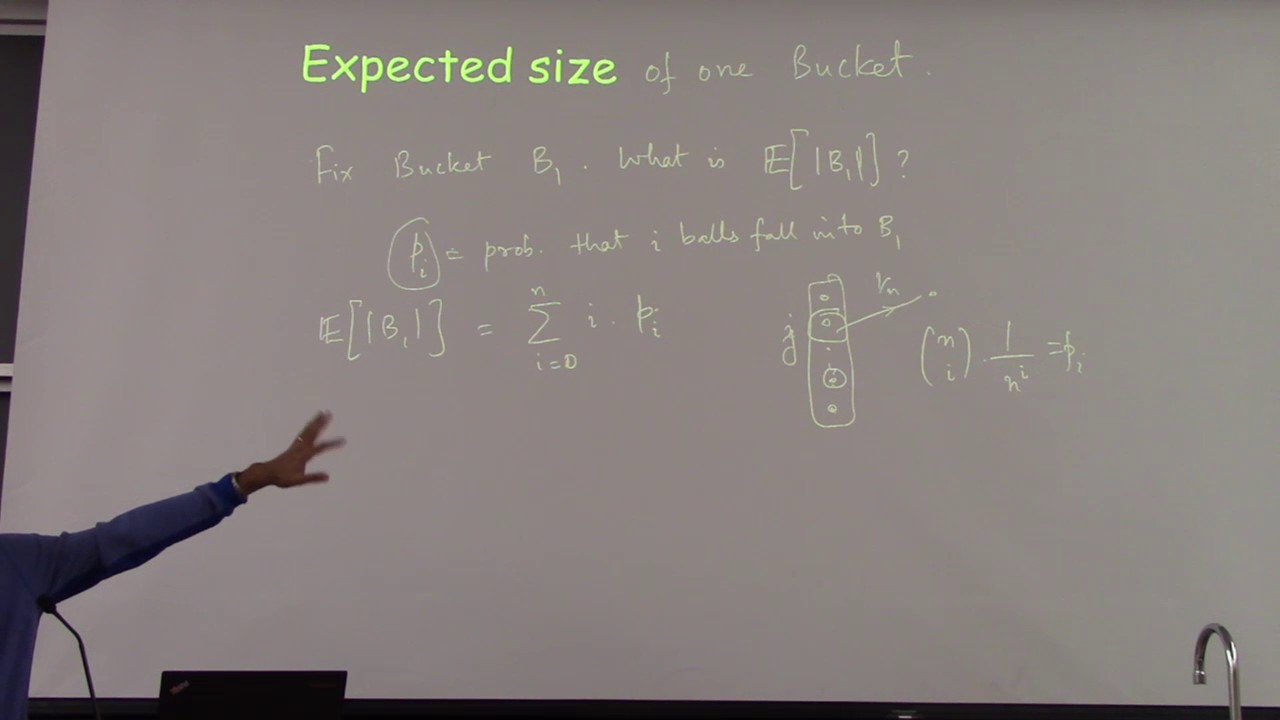 Expected size of one Bucket.
Fix Bucket B₁. What is 𝔼[|B₁|]?
pᵢ = prob. that i balls fall into B₁
𝔼[|B₁|] = ∑ⁿᵢ₌₀ i · pᵢ
j
1/n
(n i) · 1/nⁱ = pᵢ